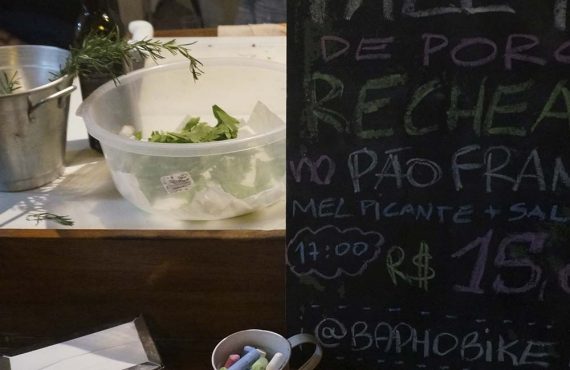 DE PORC
RECHEA
NO PÃO FRAN
MEL PICANTE + SAL
17:00 R$ 15,0
@BAPHOBIKE